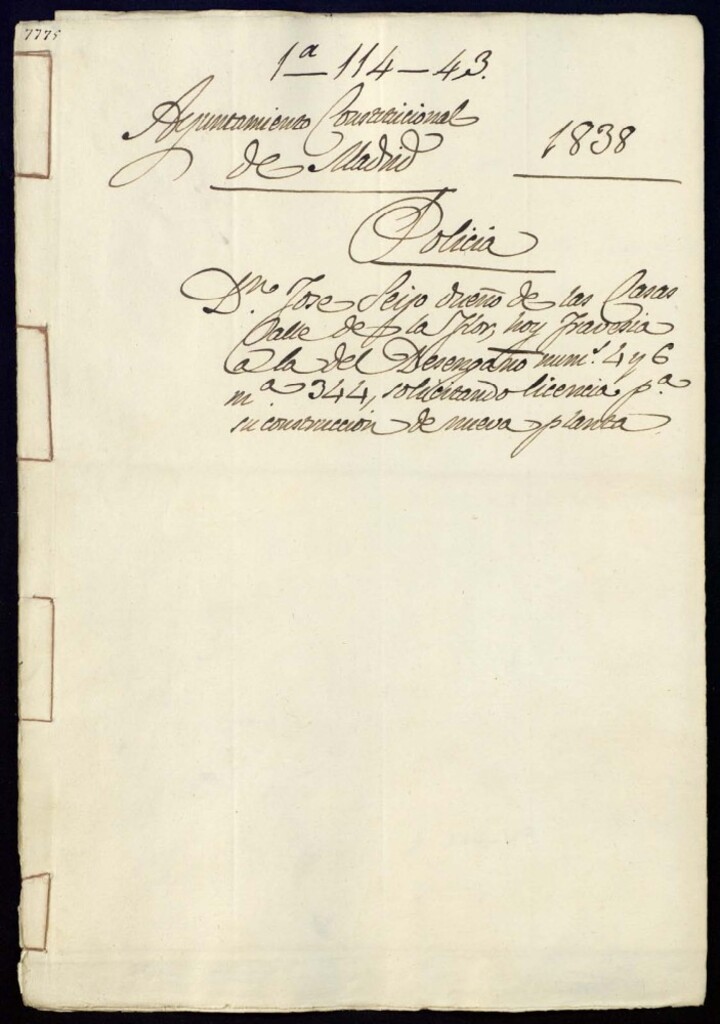 7775
1ª 114-43.
Ayuntamiento Constitucional
de Madrid
1838
Policia
Dn. Jose Seijo dueño de las Casas
Calle de la Flor, hoy Travesia
a la del Desengaño num.s 4 y 6
m.ª 344, solicitando licencia p.ª
su construccion de nueva planta